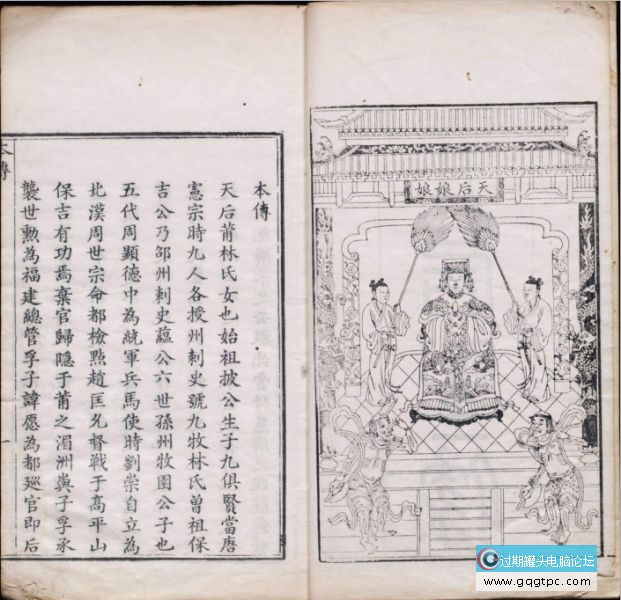 娘娘后天
本傳
天后莆林氏女也始祖披公生子九俱賢當唐
憲宗時九人各授州刺史號九牧林氏曾祖保
吉公乃邵州刺史蘊公六世孫州牧圉公子也
五代周顯德中為統軍兵馬使時劉崇自立為
北漢周世宗命都檢點趙匡允督戰于高平山
保吉有功焉棄官歸隱于莆之湄洲嶼子孚承
襲世勳為福建總管孚子諱愿為都廵官即后
本傳
一
过期罐头电脑论坛
www.gqgtpc.com